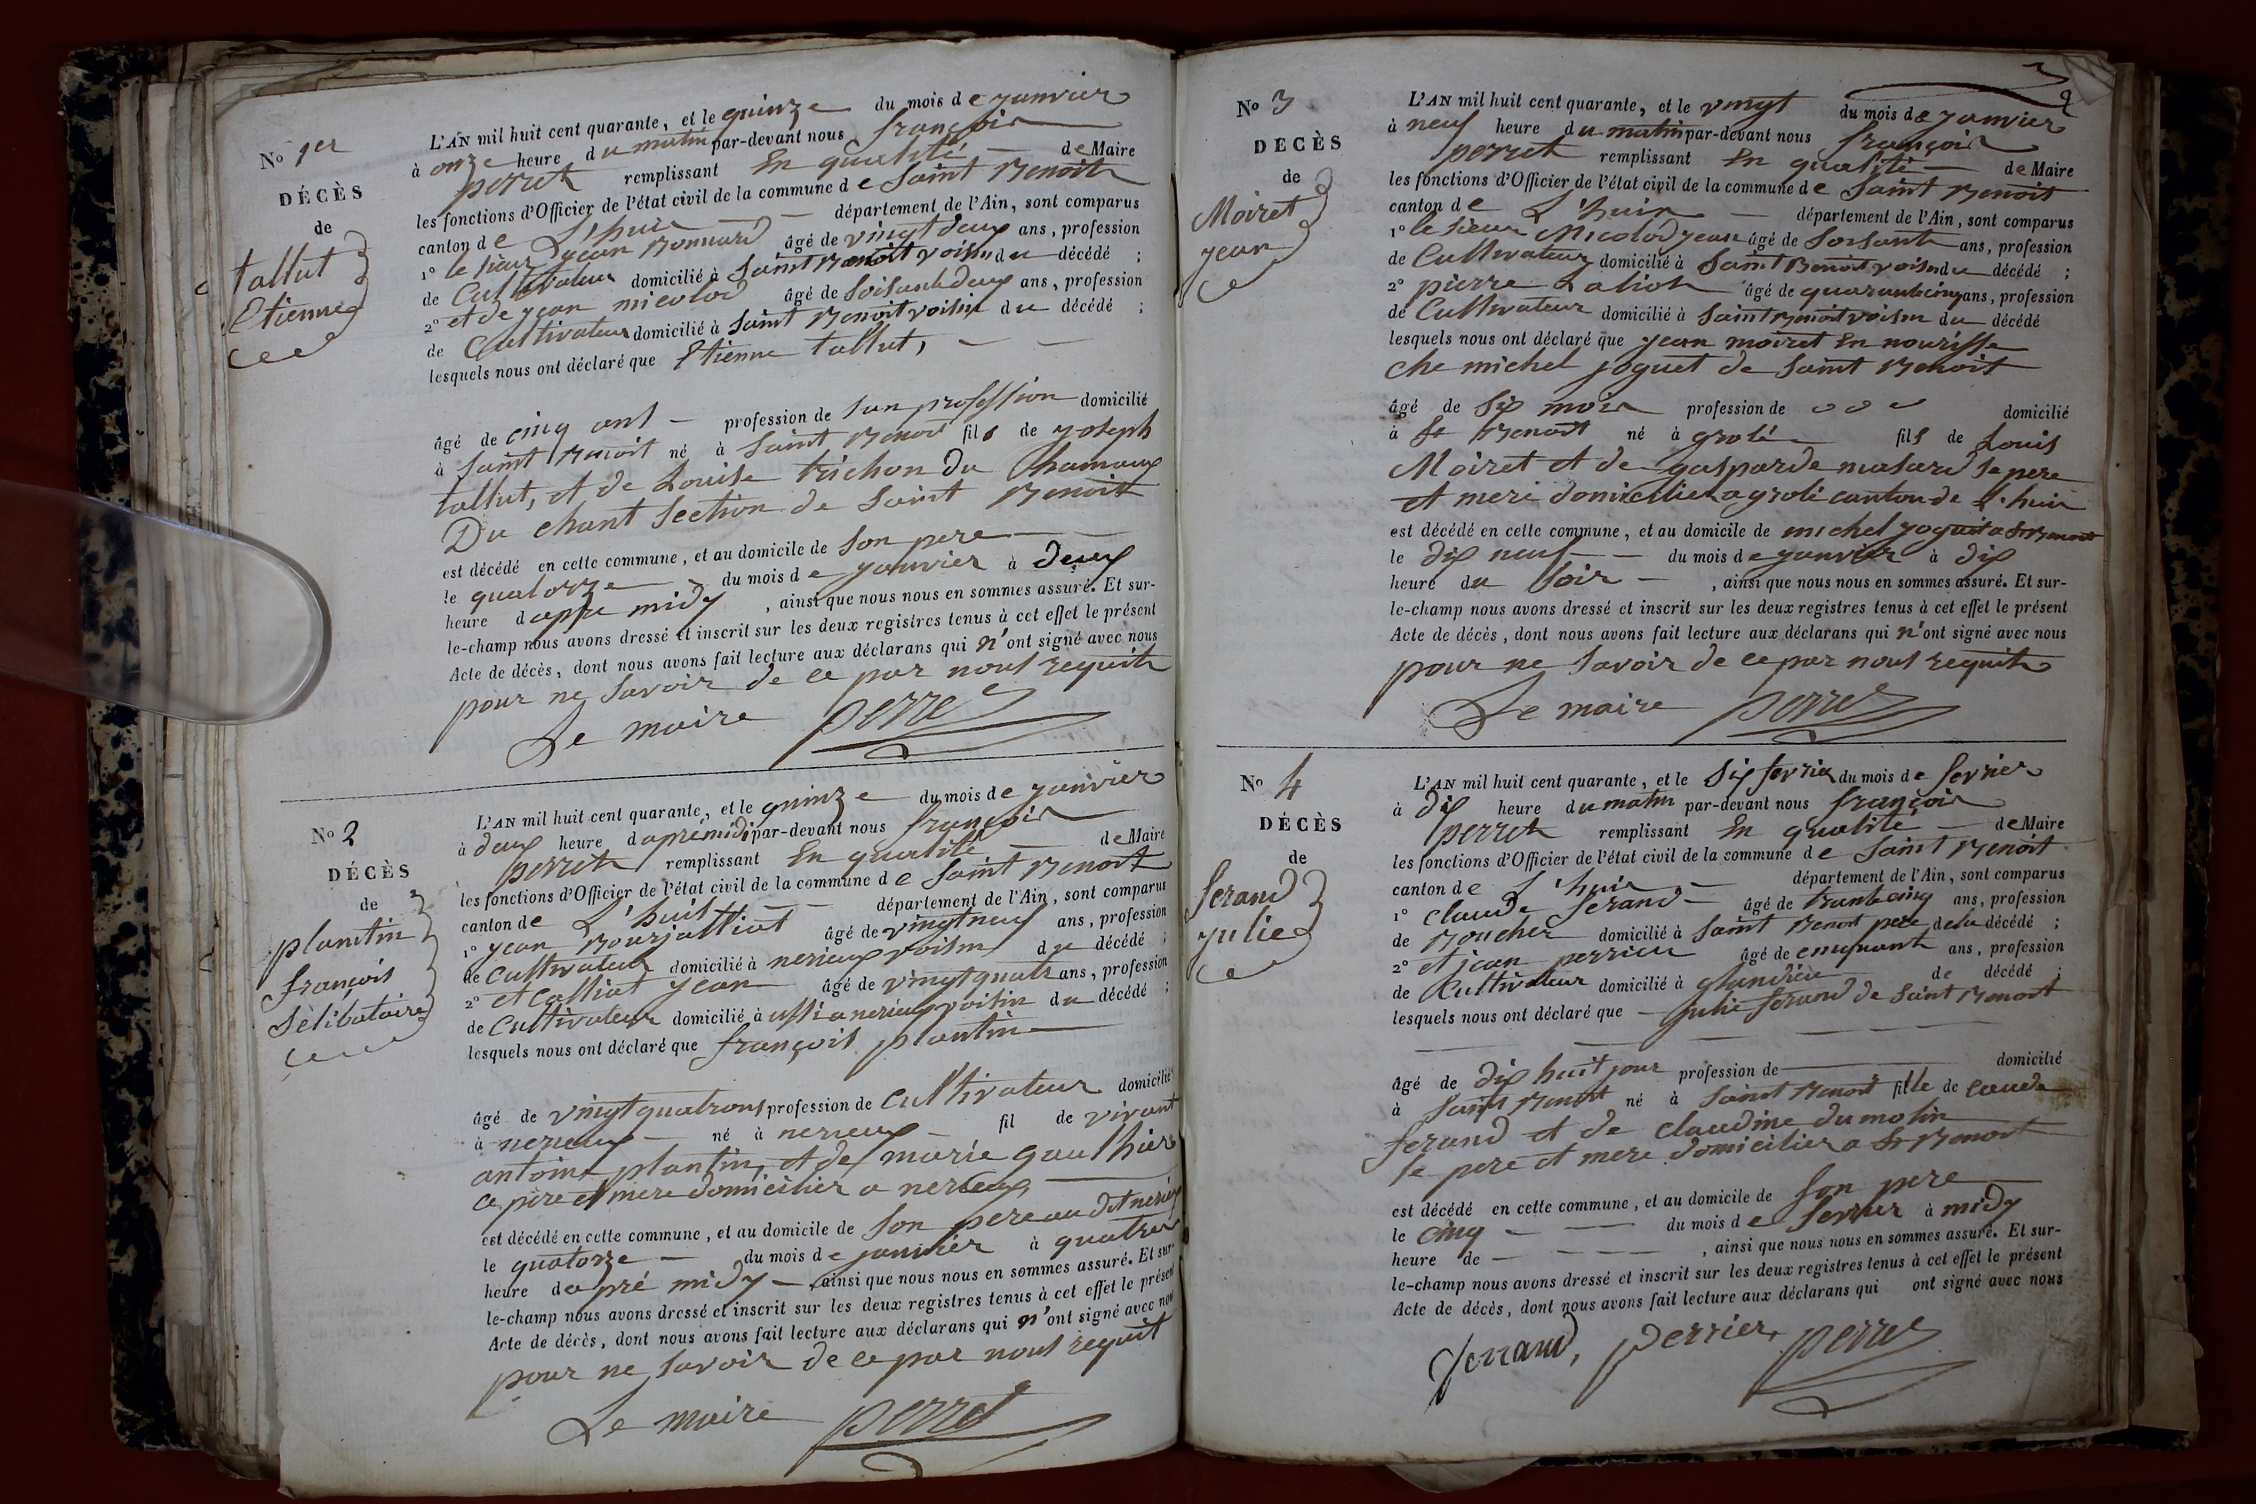 No 1er
DÉCÈS
de
tallut
Etienne
L'AN mil huit cent quarante, et le quinze du mois de janvier
à onze heure du matin par-devant nous françois
perret remplissant En qualité de Maire
les fonctions d'Officier de l'état civil de la commune de Saint Benoit
canton de L'huis département de l'Ain, sont comparus
1° le sieur jean Bonnard âgé de vingt deux ans, profession
de Cultivateur domicilié à Saint Benoit voisin du décédé ;
2° et de jean micolod âgé de Soisante deux ans, profession
de Cultivateur domicilié à Saint Benoit voisin du décédé ;
lesquels nous ont déclaré que Etienne tallut,
âgé de cinq ans profession de san profession domicilié
à Saint Benoit né à Saint Benoit fils de joseph
tallut, et de Louise trichon du hamaux
Du chant Section de Saint Benoit
est décédé en cette commune, et au domicile de Son pere
le quatorze du mois de janvier à deux
heure dapre midy , ainsi que nous nous en sommes assuré. Et sur-
le-champ nous avons dressé et inscrit sur les deux registres tenus à cet effet le présent
Acte de décès, dont nous avons fait lecture aux déclarans qui n'ont signé avec nous
pour ne Savoir de ce par nous requit
Le maire perret
No 2
DÉCÈS
de
plantin
françois
Sélibataire
L'AN mil huit cent quarante, et le quinze du mois de janvier
à deux heure daprémidi par-devant nous françois
perret remplissant En qualité de Maire
les fonctions d'Officier de l'état civil de la commune de Saint Benoit
canton de L'huis département de l'Ain, sont comparus
1° jean Bourjalliat âgé de vingt neuf ans, profession
de Cultivateur domicilié à nerieux voisin du décédé ;
2° et Calliat jean âgé de vingt quatr ans, profession
de Cultivateur domicilié à ussi a nerieux voisin du décédé ;
lesquels nous ont déclaré que françois plantin
âgé de vingt quatre ans profession de Cultivateur domicilié
à nerieux né à nerieux fil de vivant
antoine plantin, et de marie gauthier
ce père et mere domicilier a nerieux
est décédé en cette commune, et au domicile de Son pere au dit nerieux
le quatorze du mois de janvier à quatre
heure dapré midy , ainsi que nous nous en sommes assuré. Et sur-
le-champ nous avons dressé et inscrit sur les deux registres tenus à cet effet le présent
Acte de décès, dont nous avons fait lecture aux déclarans qui n'ont signé avec nous
pour ne Savoir de ce par nous requit
Le maire perret
No 3
DÉCÈS
de
Moiret
jean
L'AN mil huit cent quarante, et le vingt du mois de janvier
à neuf heure du matin par-devant nous françois
perret remplissant En qualité de Maire
les fonctions d'Officier de l'état civil de la commune de Saint Benoit
canton de L'huis département de l'Ain, sont comparus
1° le sieur Micolod jean âgé de Soisante ans, profession
de Cultivateur domicilié à Saint Benoit voisin du décédé ;
2° pierre Laliot âgé de quarante cinq ans, profession
de Cultivateur domicilié à Saint Benoit voisin du décédé
lesquels nous ont déclaré que jean moiret En nourisse
che michel joguet de Saint Benoit
âgé de Six mois profession de domicilié
à St Benoit né à grolé fils de Louis
Moiret et de gasparde masard Se pere
et mere domicilier a grolé canton de L'huis
est décédé en cette commune, et au domicile de michel joguet a St Benoit
le dix neuf du mois de janvier à dix
heure du Soir , ainsi que nous nous en sommes assuré. Et sur-
le-champ nous avons dressé et inscrit sur les deux registres tenus à cet effet le présent
Acte de décès, dont nous avons fait lecture aux déclarans qui n'ont signé avec nous
pour ne Savoir de ce par nous requit
Le maire perret
No 4
DÉCÈS
de
ferand
julie
L'AN mil huit cent quarante, et le Six fevrier du mois de fevrier
à dix heure du matin par-devant nous françois
perret remplissant En qualité de Maire
les fonctions d'Officier de l'état civil de la commune de Saint Benoit
canton de L'huis département de l'Ain, sont comparus
1° claude ferand âgé de trente cinq ans, profession
de Boucher domicilié à Saint Benoit pere de la décédé ;
2° et jean perrier âgé de cinquante ans, profession
de Cultivateur domicilié à glandieu de décédé ;
lesquels nous ont déclaré que julie ferand de Saint Benoit
âgé de dix huit jour profession de domicilié
à Saint Benoit né à Saint Benoit fille de claude
ferand et de claudine dumolin
Se pere et mere domicilier a St Benoit
est décédé en cette commune, et au domicile de Son pere
le cinq du mois de fevrier à midy
heure de , ainsi que nous nous en sommes assuré. Et sur-
le-champ nous avons dressé et inscrit sur les deux registres tenus à cet effet le présent
Acte de décès, dont nous avons fait lecture aux déclarans qui ont signé avec nous
ferrand, perrier, perret